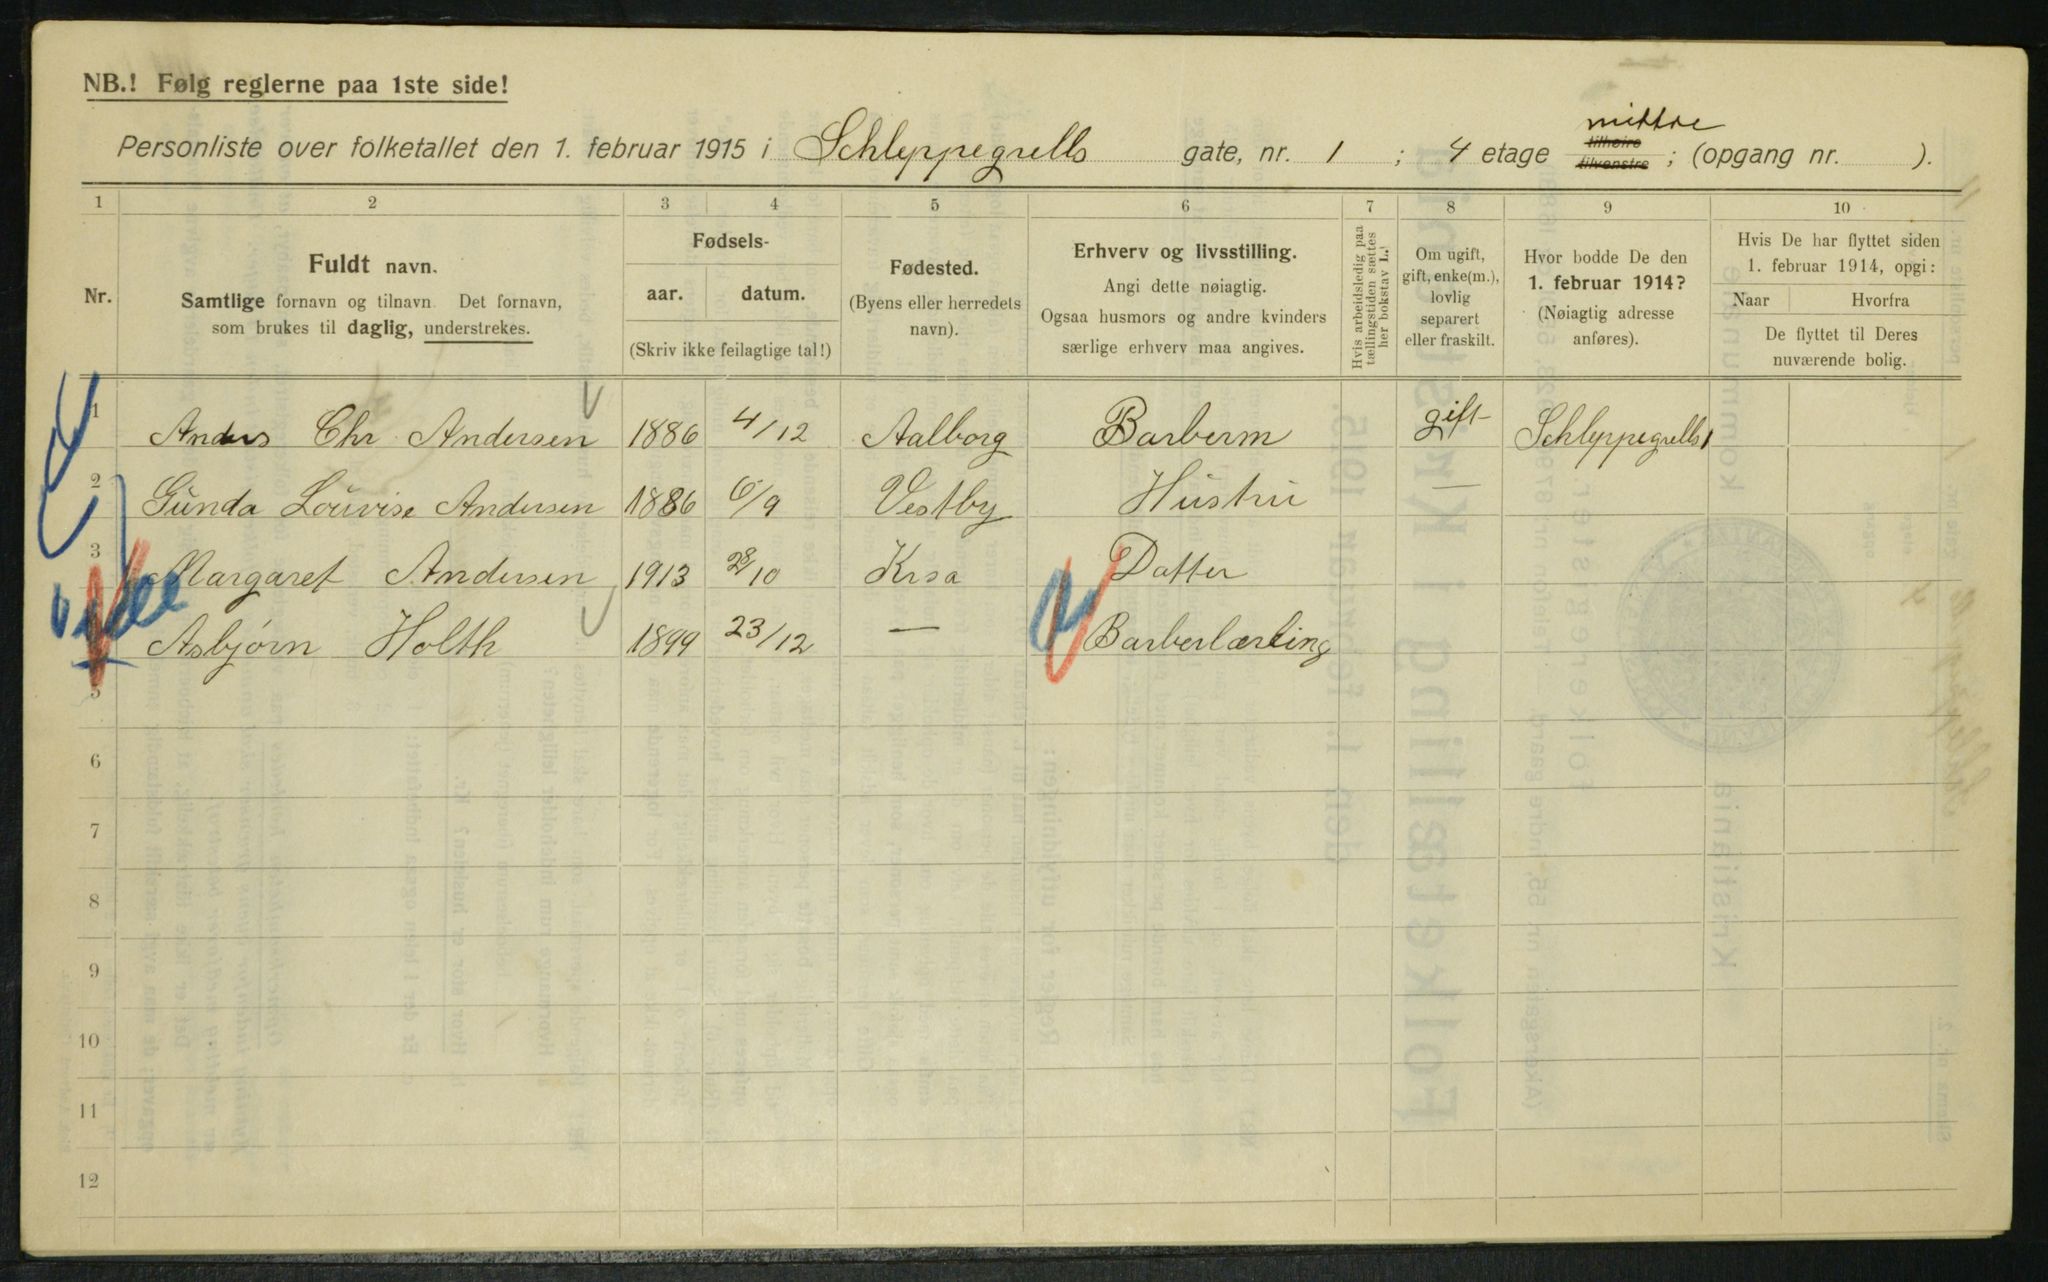 NB.! Følg reglerne paa 1ste side!
Personliste over folketallet den 1. februar 1915 i Schleppegrells gate, nr. 1 ; 4 etage tilhøire tilvenstre mittre ; (opgang nr. ).
1 2 3 4 5 6 7 8 9 10
Nr.
Fuldt navn.
Samtlige fornavn og tilnavn. Det fornavn,
som brukes til daglig, understrekes.
Fødsels-
aar. datum.
(Skriv ikke feilagtige tal!)
Fødested.
(Byens eller herredets
navn).
Erhverv og livsstilling.
Angi dette nøiagtig.
Ogsaa husmors og andre kvinders
særlige erhverv maa angives.
Hvis arbeidsledig paa
tællingstiden sættes
her bokstav L.!
Om ugift,
gift, enke(m.),
lovlig
separert
eller fraskilt.
Hvor bodde De den
1. februar 1914?
(Nøiagtig adresse
anføres).
Hvis De har flyttet siden
1. februar 1914, opgi:
Naar Hvorfra
De flyttet til Deres
nuværende bolig.
1 Anders Chr Andersen 1886 4/12 Aalborg Barberm gift Schleppegrells 1
2 Gunda Louvise Andersen 1886 6/9 Vestby Hustru —
3 Margaret Andersen 1913 28/10 Krsa Datter
Asbjørn Holth 1899 23/12 — Barberlærling
5
6
7
8
9
10
11
12